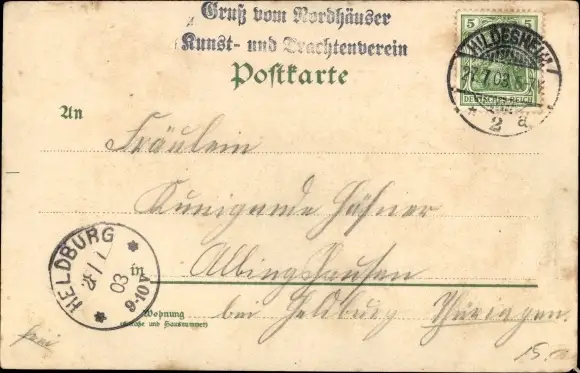 Gruß vom Nordhäuser
Kunst- und Trachtenverein
Postkarte
5 5
DEUTSCHES REICH
HILDESHEIM
27.7.03
* 2 a
An
Fräulein
Kunigunde Häfner
in
bei Heldburg Thüringen.
HELDBURG
03
9-10V
Wohnung
(Straße und Hausnummer)
frei
15.-